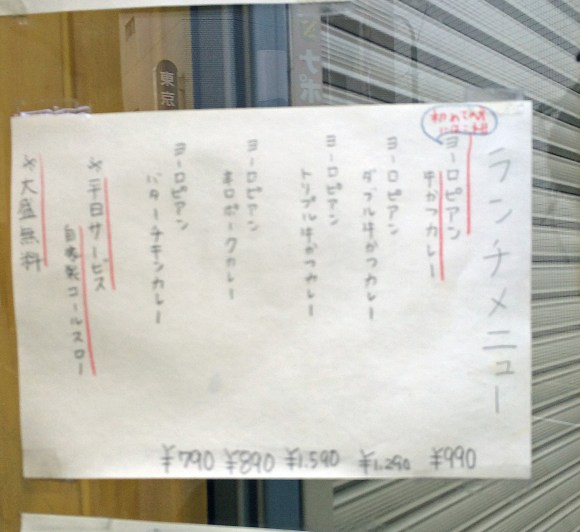 ランチメニュー
初めての方
ヨーロピアン
牛かつカレー
¥990
ヨーロピアン
ダブル牛かつカレー
¥1,290
ヨーロピアン
トリプル牛かつカレー
¥1,590
ヨーロピアン
辛口ポークカレー
¥890
ヨーロピアン
バターチキンカレー
¥790
※平日サービス
自家製コールスロー
※大盛無料
東京
ナポ